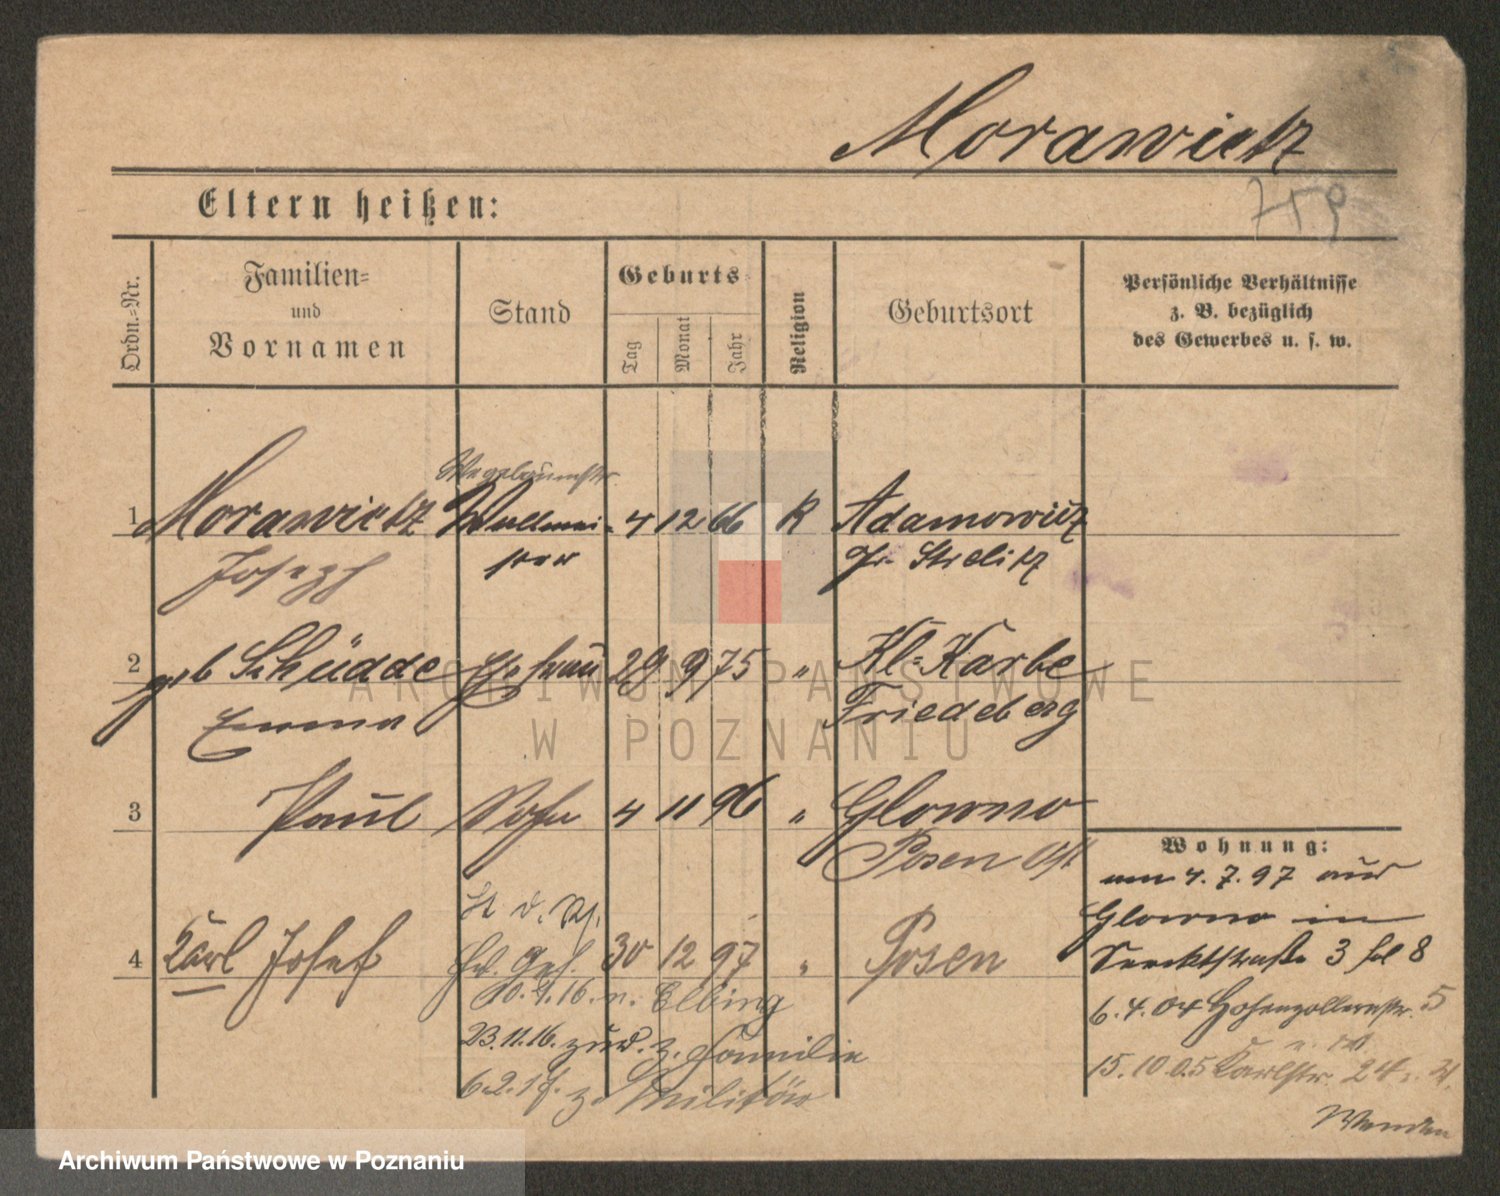 Morawietz
Eltern heißen:
Ordn.-Nr.
Familien-
und
Vornamen
Stand
Geburts
Tag
Monat
Jahr
Religion
Geburtsort
Persönliche Verhältnisse
z. B. bezüglich
des Gewerbes u. s. w.
1 Morawietz Wallmei- 4 12 66 K Adamowitz
Joseph ster Gr. Strelitz
2 geb Schüdde Ehefrau 29 9 75 " Kl=Karbe
Emma Friedeberg
3 Paul Sohn 4 11 96 " Glowno
Posen Ost
Wohnung:
am 4.7.97 aus
Glowno in
4 Karl Josef 30 12 97 " Posen
3 8
10.9.16. n. Elbing
6.4.04 Hohenzollernstr. 5
23.11.16. zur. z. Familie
15.10.05 Karlstr. 24
z. Militär
Wenden
ARCHIWUM PAŃSTWOWE
W POZNANIU
Archiwum Państwowe w Poznaniu